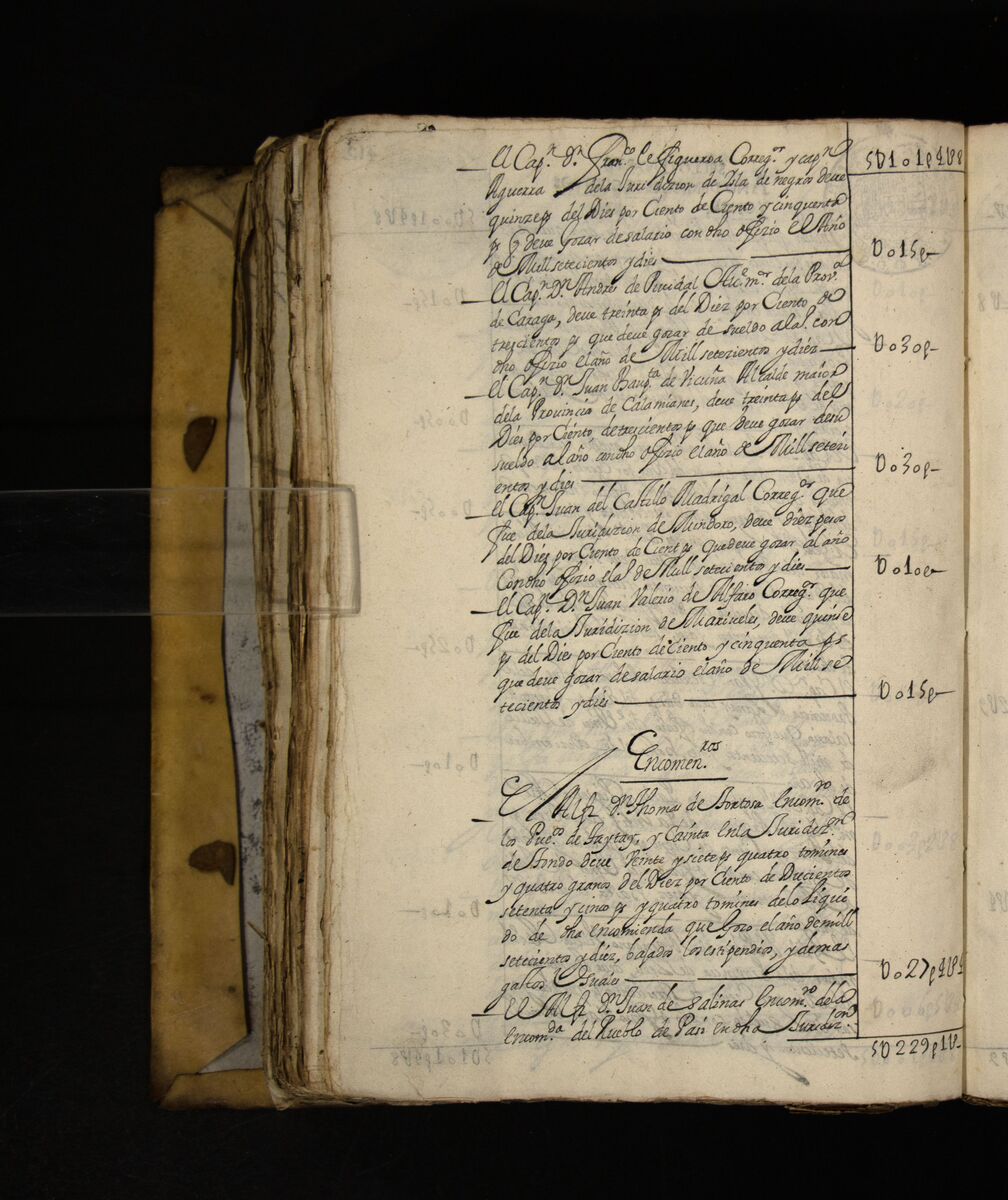 5U101p4V8
El Cap.n D.n Fran.co de Figueroa Correg.or y cap.n
Aguerra dela Juridizion de Isla de negros deve
quinze ps del Dies por Ciento de Ciento y cinquenta
ps q deve gozar de salario con dho ofizio el Año
de Mill setecientos y dies
U015p
El Cap.n D.n Andres de Alc.e m.or dela Prov.a
de Caraga, deve treinta ps del Diez por Ciento de
trescientos ps que deve gozar de sueldo al a.o con
dho ofizio el año de Mill setezientos y diez
U030p
El Cap.n D.n Juan Baup.ta de Vicuña Alcalde maior
dela Provincia de Calamianes, deve treinta ps del
Dies por Ciento, de trescientos ps que deve gozar desu
sueldo al año con dho ofizio el año de Mill seteçi
entos y dies
U030p
El Cap.n Juan del Castillo Madrigal Correg.or que
fue dela Juridizion de Mindoro, deve diez pesos
del Diez por Ciento de Cient ps que deve gozar al año
Con dho ofizio el a.o de Mill setecientos y dies
U010p
El Cap.n D.n Juan Valerio de Alfaro Correg.or que
fue dela Juridizion de Mariveles, deve quinse
ps del Dies por Ciento de Ciento y cinquenta ps
que deve gozar de salario el año de Mill se
tecientos y dies
U015p
Encomen.ros
El Alf.z D.n Thomas de Encom.ro de
los Pue.os de Taytay, y Cainta en la Juridiz.on
de Tondo deve Veinte y siete ps quatro tomines
y quatro granos del Diez por Ciento de Ducientos
setenta y cinco ps y quatro tomines delo Liqui
do de dha encomienda que Gozo el año de mill
setecientos y diez, bajados los estipendios, y demas
gastos Usuales
U027p4V4
El Alf.z D.n Juan de Salinas Encom.ro dela
Encom.da del Pueblo de Pasi en dha Juridiz.on
5U229p1V